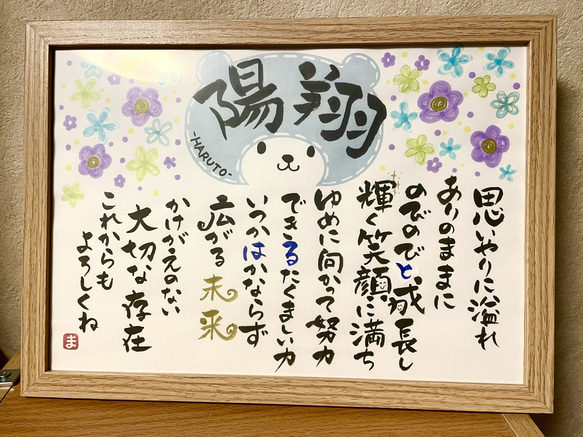 陽翔
-HARUTO-
思いやりに溢れ
ありのままに
のびのびと成長し
輝く笑顔に満ち
ゆめに向かって努力
できるたくましい力
いつかはかならず
広がる未来
かけがえのない
大切な存在
これからも
よろしくね
ま